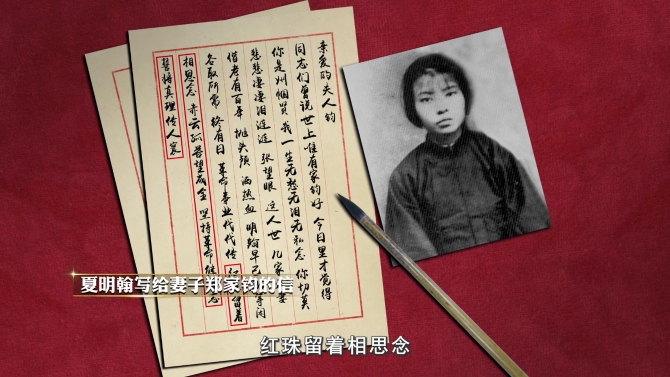 亲爱的夫人钧
同志们曾说世上唯有家钧好 今日里才觉得
你是巾帼贤 我一生无愁无泪无私念 你切莫
悲悲凄凄泪涟涟 张望眼 这人世 几家夫妻
偕老有百年 抛头颅 洒热血 明翰早已 等闲
各取所需 终有日 革命事业代代传 红 留着
相思念 赤云孤苦望成全 坚持革命继
誓将真理传人寰
夏明翰写给妻子郑家钧的信
红珠留着相思念